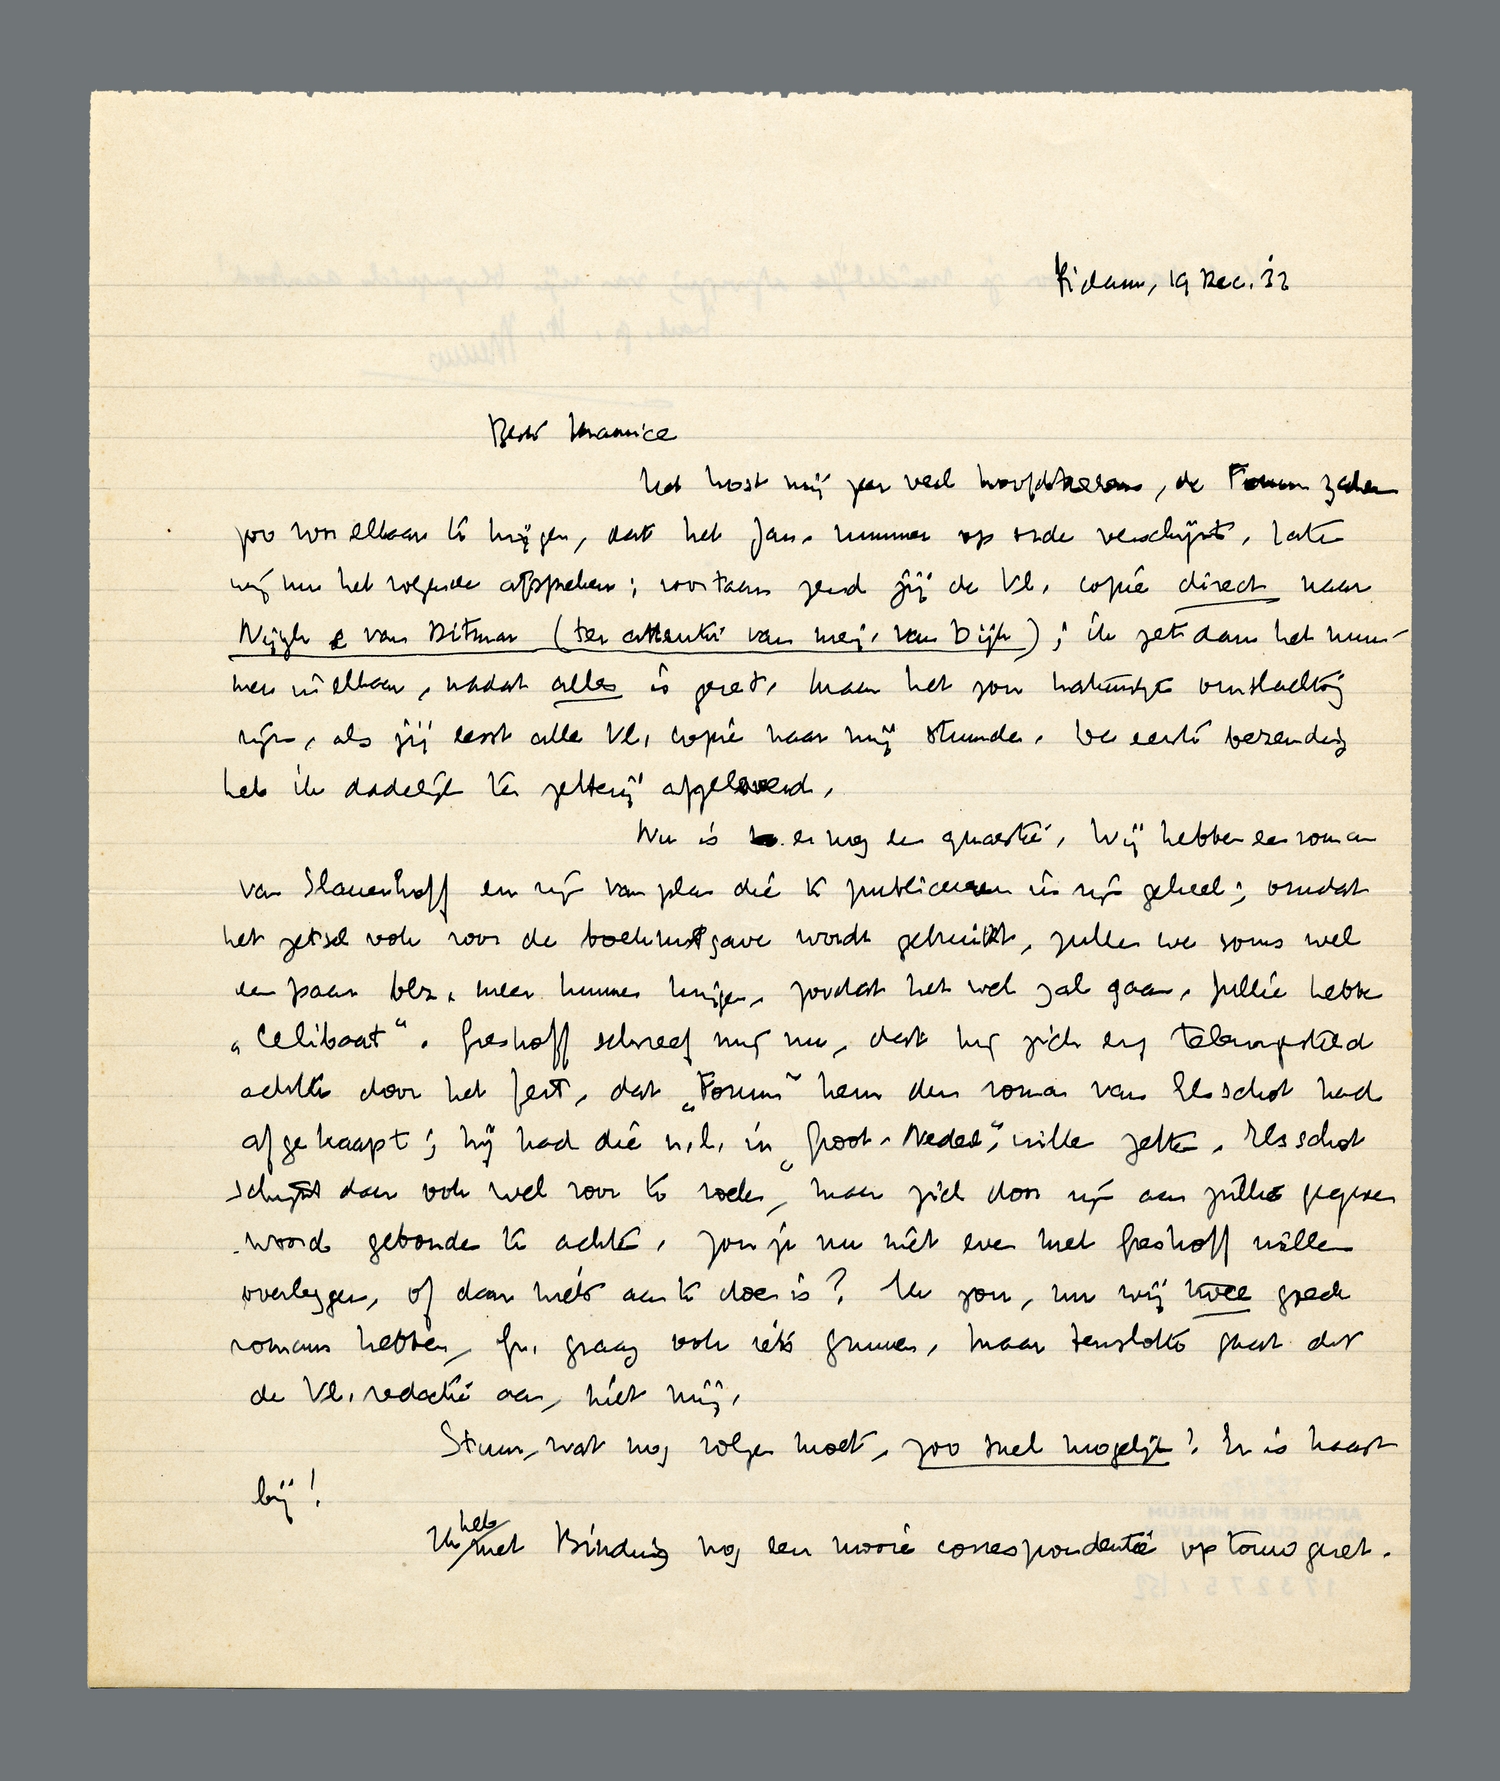 R'dam, 19 Dec. '33
Beste Maurice
Het kost mij zeer veel hoofdbrekens, de Forum zaken
zoo voor elkaar te krijgen, dat het Jan. nummer op orde verschijnt. Laten
wij nu het volgende afspreken; voortaan zend jij de Vl. copie direct naar
Nijgh & van Ditmar (ter attentie van mej. van Dijk); ik zet dan het num-
mer in elkaar, nadat alles is gezet. Maar het zou natuurlijk omslachtig
zijn, als jij eerst alle Vl. copie naar mij stuurde. De eerste bezending
heb ik dadelijk ter zetterij afgeleverd.
Nu is er nog een quaestie. Wij hebben een roman
van Slauerhoff en zijn van plan die te publiceeren in zijn geheel; omdat
het zetsel ook voor de boekuitgave wordt gebruikt, zullen we soms wel
een paar blz. meer kunnen krijgen, zoodat het wel zal gaan. Jullie hebben
„Celibaat“. Greshoff schreef mij nu, dat hij zich erg teleurgesteld
achtte door het feit, dat „Forum“ hem den roman van Elsschot had
afgekaapt; hij had die n.l. in „Groot-Nederl.“ willen zetten. Elsschot
schijnt daar ook wel voor te voelen, maar zich door zijn aan jullie gegeven
woord gebonden te achten. Zou je nu niet even met Greshoff willen
overleggen, of daar niets aan te doen is? Ik zou, nu wij twee goede
romans hebben, Gr. graag ook iets gunnen. Maar tenslotte gaat dit
de Vl. redactie aan, niet mij.
Stuur, wat nog volgen moet, zoo snel mogelijk! Er is haast
bij!
Ik heb met Binding nog een mooie correspondentie op touw gezet.